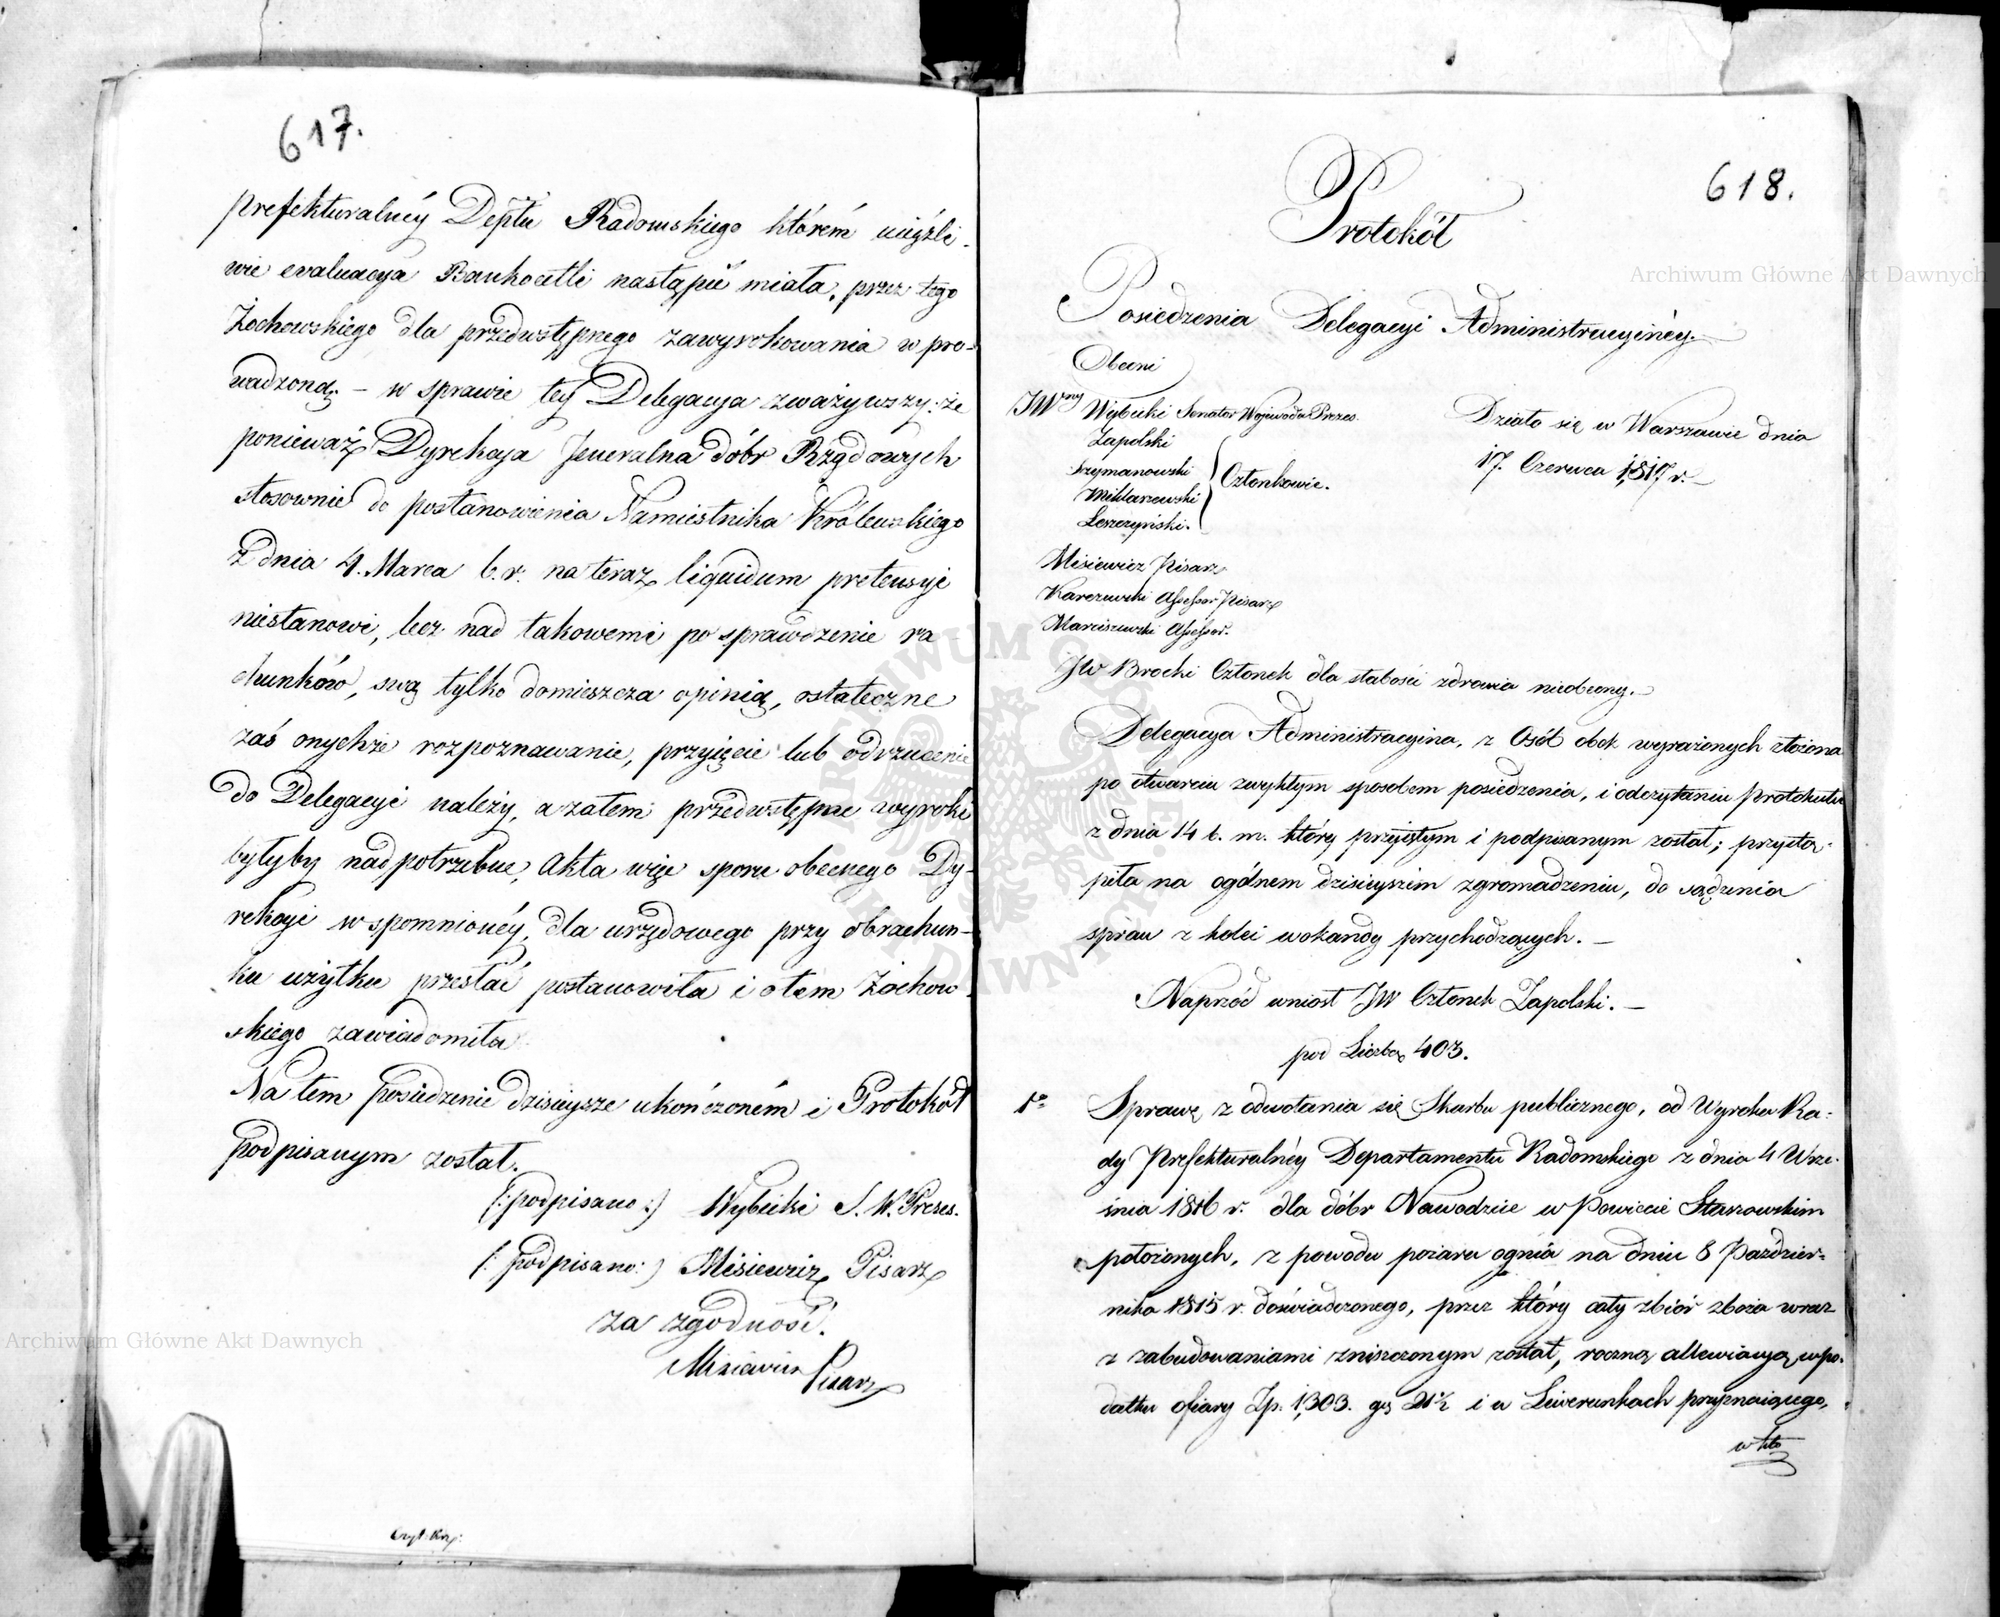 617.
prefekturalnéy Deptu Radomskiego którém uciążli-
wie evaluacya Bankocetli nastąpić miała, przez tego
Żochowskiego dla przedwstępnego zawyrokowania w pro-
wadzoną. – w sprawie tey Delegacya zważywszy: że
ponieważ Dyrekcya Jeneralna dóbr Rządowych
stosownie do postanowienia Namiestnika Królewskiego
z dnia 4. Marca b. r. na teraz liquidum pretensyi
niestanowi, lecz nad takowemi po sprawdzenie ra
chunków, swą tylko domieszcza opinią, ostateczne
zaś onychże rozpoznawanie, przyięcie lub odrzucenie
do Delegacyi należy, a zatem przedwstępne wyroki
byłyby nadpotrzebne, Akta więc sporu obecnego Dy-
rekcyi wspomnionéy, dla urzędowego przy obrachun-
ku użytku przesłać postanowiła i otem Żochow-
skiego zawiadomiła
Na tem posiedzenie dzisieysze ukończoném i Protokół
podpisanym został.
(: podpisano :) Wybicki S. W. Prezes.
(: podpisano :) Misiewicz Pisarz
za zgodność.
Misiewicz Pisarz
618.
Protokół
Posiedzenia Delegacyi Administracyinéy.
Obecni
JWny Wybicki Senator Wojewoda Prezes.
Zapolski
Szymanowski
Członkowie.
Miklaszewski
Leszczyński.
Działo się w Warszawie dnia
17. Czerwca 1,817 r. –
Misiewicz Pisarz
Karczewski Assessor Pisarz
Marciszewski Assessor.
JW Brocki Członek dla słabości zdrowia nieobecny. –
Delegacya Administracyina, z Osób obok wyrażonych złożona
po otwarciu zwykłym sposobem posiedzenia, i odczytaniu Protokułu
z dnia 14 b. m. który przyiętym i podpisanym został; przystą-
piła na ogólnem dzisieyszim zgromadzeniu, do sądzenia
spraw z kolei wokandy przychodzących. –
Naprzód wniósł JW Członek Zapolski. –
pod Liczbą 403.
1º Sprawę z odwołania się Skarbu publicznego, od Wyroku Ra-
dy Prefekturalnéy Departamentu Radomskiego z dnia 4 Wrze-
śnia 1816 r. dla dóbr Nawodzice w Powiecie Staszowskim
położonych, z powodu pożaru ognia na dniu 8 Paździer-
nika 1815 r. doświadczonego, przez który cały zbiór zboża wraz
z zabudowaniami zniszczonym został, roczną allewiacyą w po-
datku ofiary Zp. 1,303. gr 21½ i w Liwerunkach przyznaiącego,
Archiwum Główne Akt Dawnych
Archiwum Główne Akt Dawnych
ARCHIWUM GŁÓWNE AKT DAWNYCH